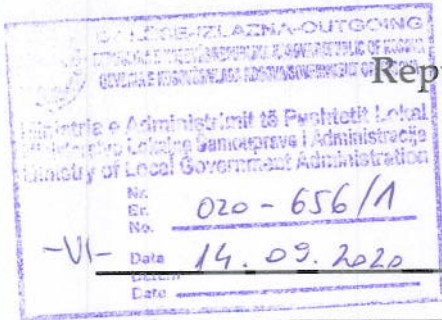 DALËSE-IZLAZNA-OUTGOING
Repu
Ministria e Administrimit të Pushtetit Lokal
Ministarstvo Lokalne Samouprave i Administracije
Ministry of Local Government Administration
Nr.
Br.
No. 020-656/1
-VI- Data 14.09.2020
Datum
Date